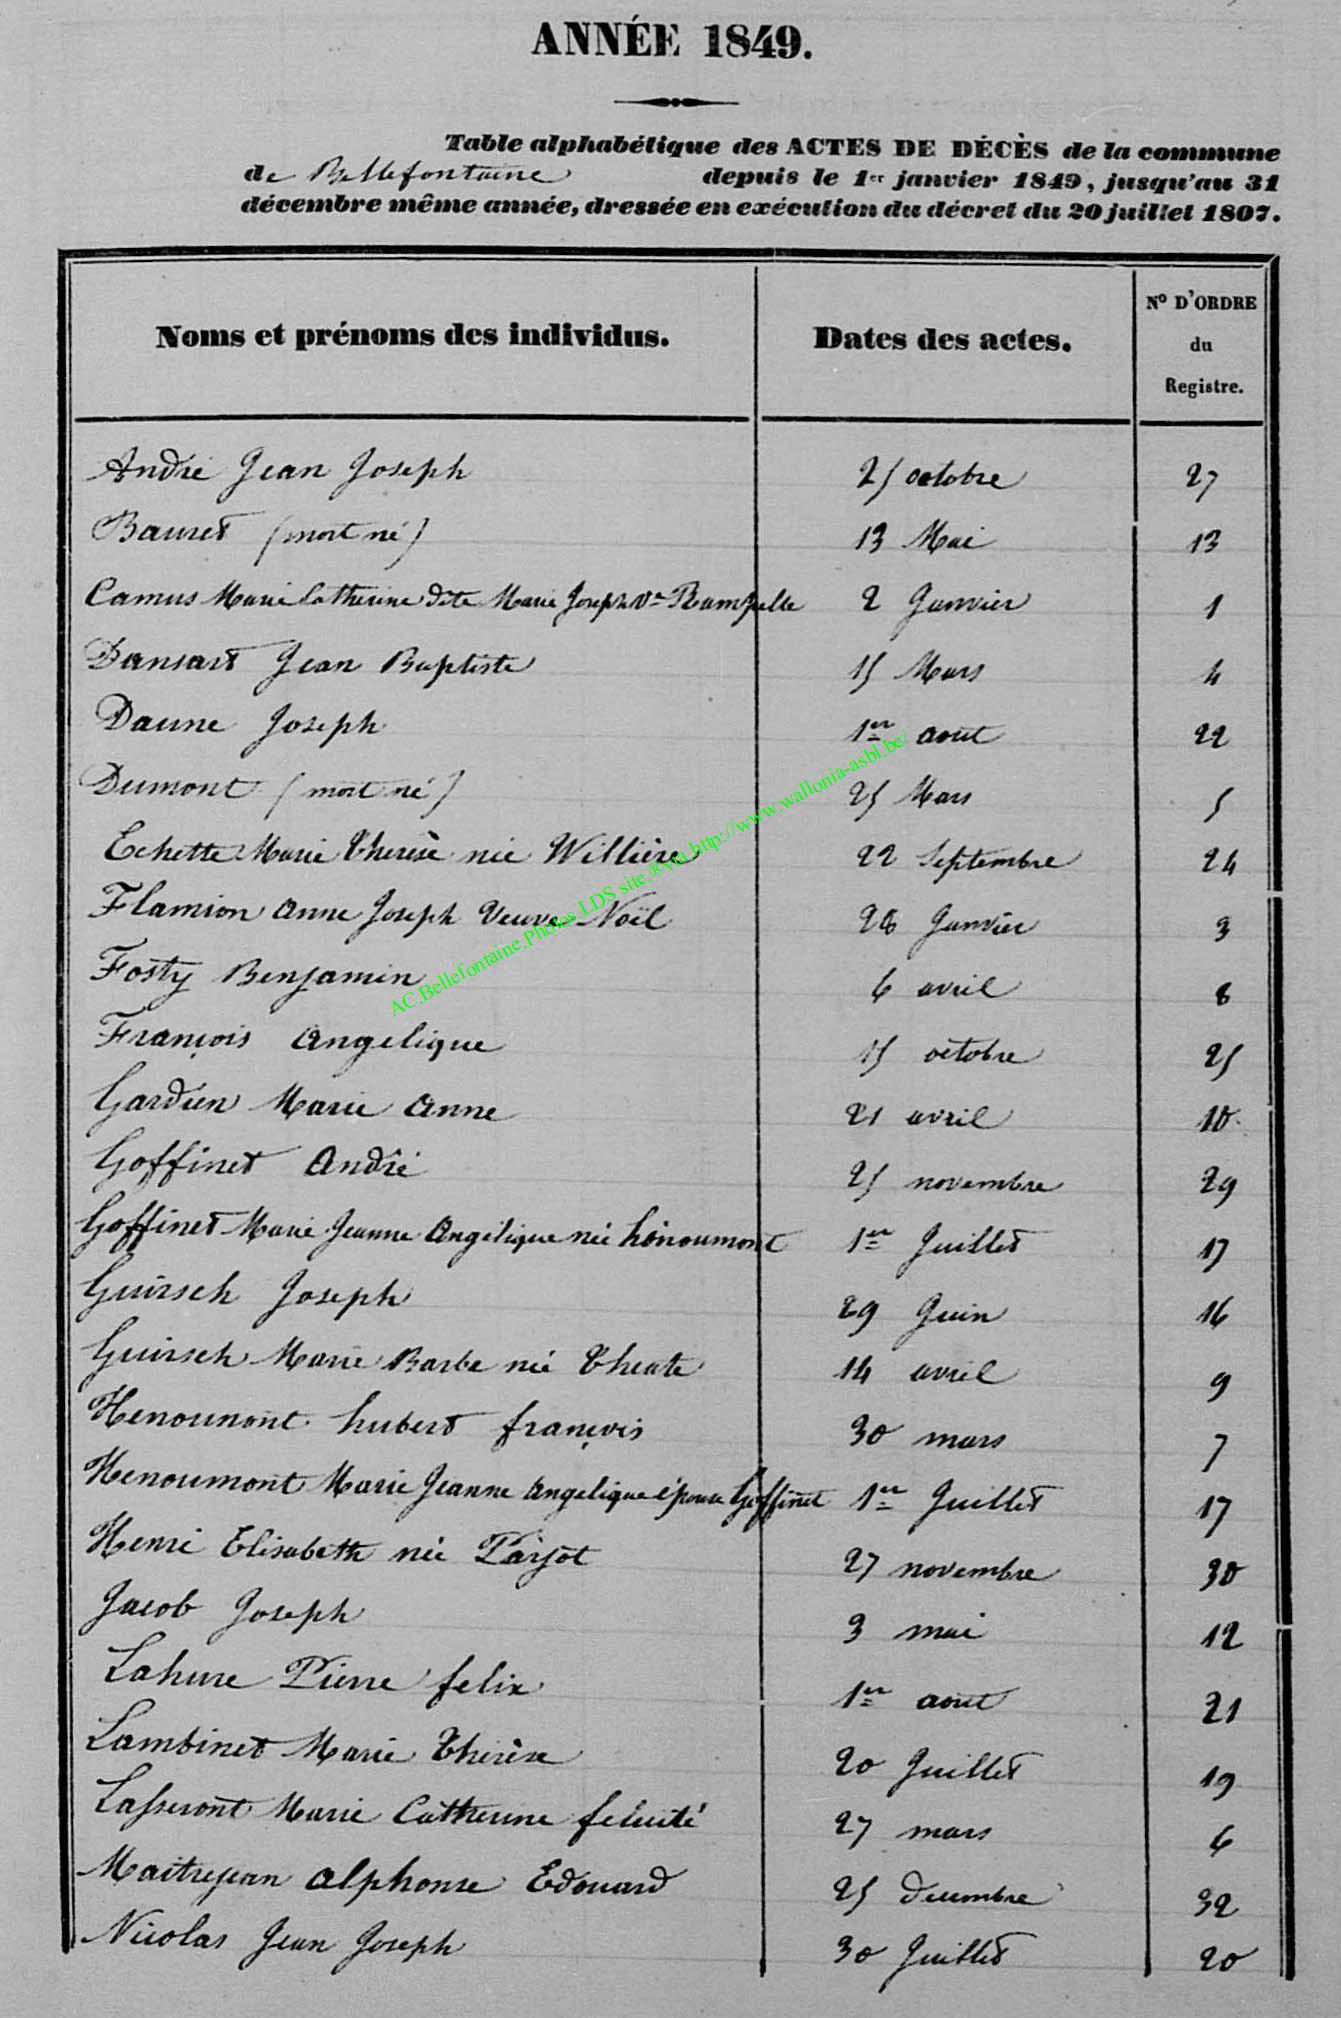 ANNÉE 1849.
Table alphabétique des ACTES DE DÉCÈS de la commune
de Bellefontaine depuis le 1er janvier 1849, jusqu'au 31
décembre même année, dressée en exécution du décret du 20 juillet 1807.
Noms et prénoms des individus. Dates des actes. No D'ORDRE du Registre.
André Jean Joseph 25 octobre 27
Bauret (mort né) 13 Mai 13
Camus Marie Catherine dite Marie Joseph Ve 2 Janvier 1
Dansart Jean Baptiste 15 Mars 4
Daune Joseph 1er aout 22
Dumont (mort né) 25 Mars 5
Echette Marie Thérèse née Willière 22 Septembre 24
Flamion Anne Joseph Veuve Noël 28 Janvier 3
Fosty Benjamin 6 avril 8
François Angelique 15 octobre 25
Gardien Marie Anne 21 avril 10
Goffinet André 25 novembre 29
Goffinet Marie Jeanne Angélique née hénoumont 1er Juillet 17
Guirsch Joseph 29 Juin 16
Guirsch Marie Barbe née 14 avril 9
Henoumont hubert françois 30 mars 7
Henoumont Marie Jeanne Angelique épouse Goffinet 1er Juillet 17
Henri Elisabeth née 27 novembre 30
Jacob Joseph 3 mai 12
Lahure Pierre felix 1er aout 21
Lambinet Marie Thérèse 20 Juillet 19
Marie Catherine felicité 27 mars 6
Maitrejean Alphonse Edouard 25 decembre 32
Nicolas Jean Joseph 30 Juillet 20
AC.Bellefontaine.Photos LDS site.®via http://www.wallonia-asbl.be/